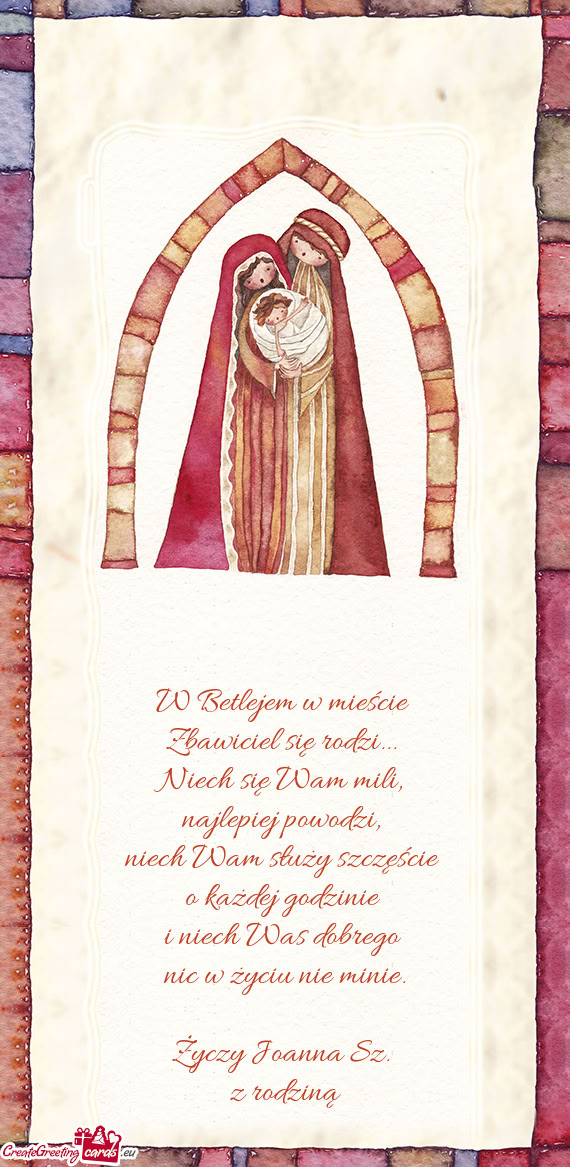 W Betlejem w mieście
Zbawiciel się rodzi...
Niech się Wam mili,
najlepiej powodzi,
niech Wam służy szczęście
o każdej godzinie
i niech Was dobrego
nic w życiu nie minie.
Życzy Joanna Sz.
z rodziną
CreateGreeting cards .eu